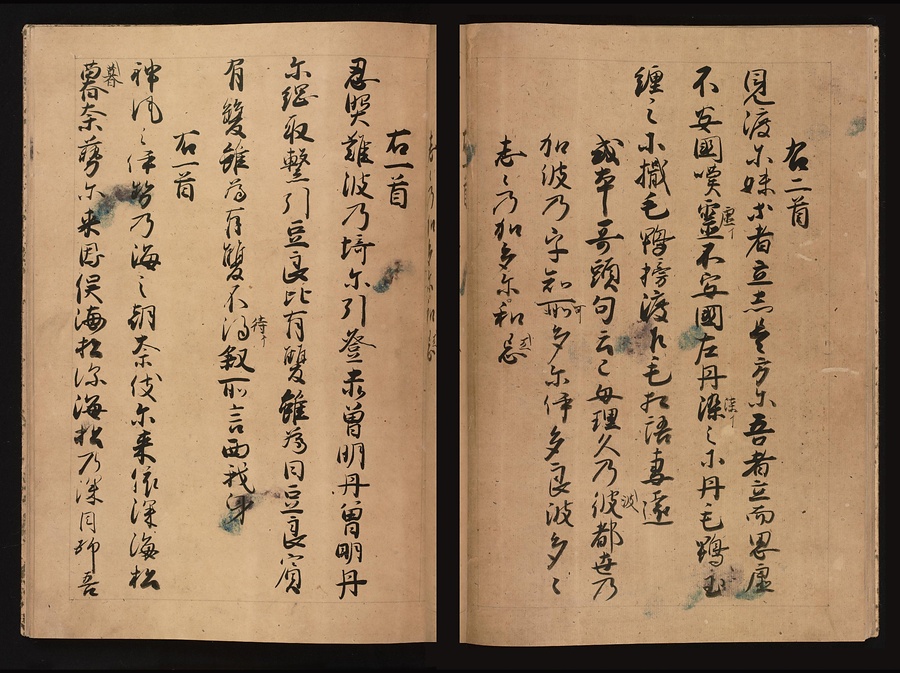 右二首
見渡尓妹ホ者立志是方尓吾者立而思虚
不安國嘆靈不安國左丹深之小丹毛鴨玉
纏之小檝毛鴨榜渡乍毛相語妻遠
或本哥頭句云己母理久乃彼都世乃
加彼乃乎知所多尓伊多良波多々
志々乃加多尓和忌
右一首
忍照難波乃埼尓引登赤曽明丹曽明丹
尓綱取繋引豆良比有雙雖為曰豆良賓
有雙雖為有雙不得叙所言西我身
右一首
神風之伊勢乃海之朝奈伎尓来依深海松
暮奈藝尓来因俣海松深海松乃深目師吾